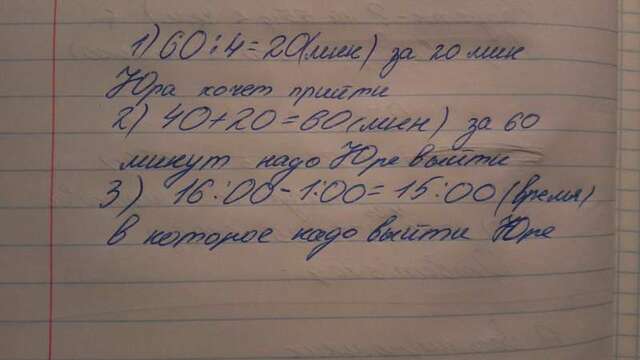 1) 60:4=20(мин) за 20 мин
Юра хочет прийти
2) 40+20=60(мин) за 60
минут надо Юре выйти
3) 16:00-1:00=15:00 (время)
в которое надо выйти Юре